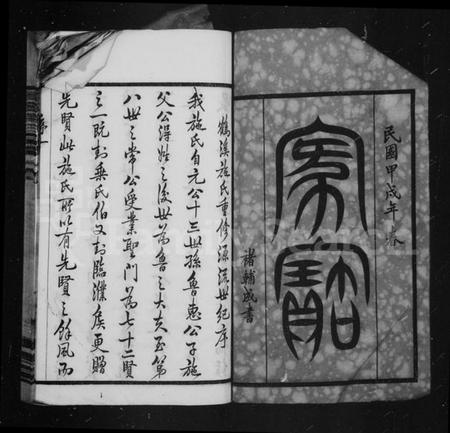 民國甲戌年春
家諮
褚輔成書
鶴溪施氏重修源流世紀序
我施氏自元公十三世孫魯惠公子施
父公得姓之後世爲魯之大夫至第
八世之常公受業聖門爲七十二賢
之一既封乘氏伯又封臨濮侯更贈
先賢此施氏所以有先賢之餘風而
序一